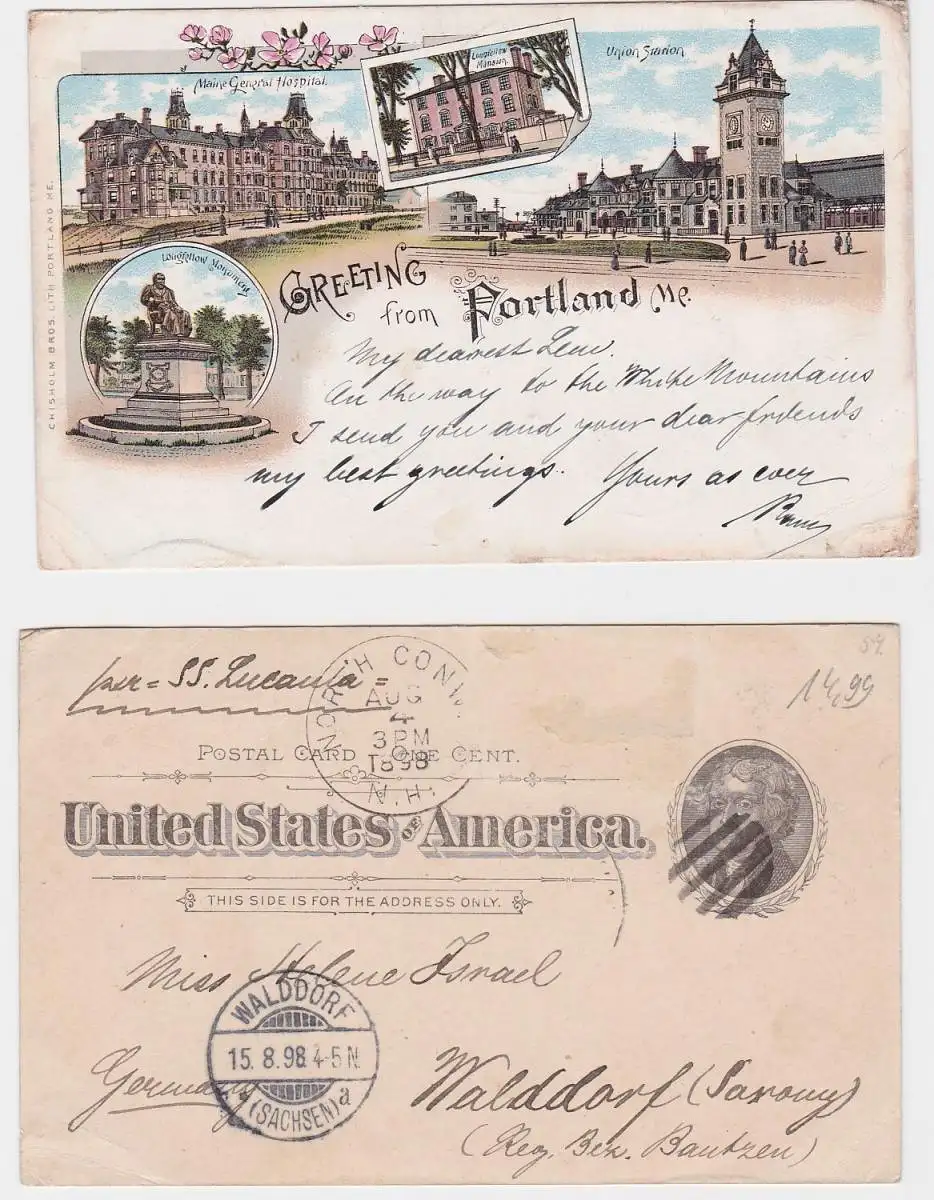 Maine General Hospital.
Longfellow
Mansion.
Union Station
CHISHOLM BROS. LITH PORTLAND ME.
Longfellow Monument
GREETING
from Portland Me.
My dearest
On the way to the White Mountains
I send you and your dear friends
my best greetings. Yours as ever
per = SS. Lucania =
NORTH CONW
AUG
4
3 PM
1898
N.H.
14,99
POSTAL CARD ONE CENT.
United States of America.
THIS SIDE IS FOR THE ADDRESS ONLY.
Miss Helene Israel
WALDDORF
15. 8. 98. 4-5 N.
(SACHSEN) a
Germany
Walddorf (Saxony)
(Reg. Bez. Bautzen)